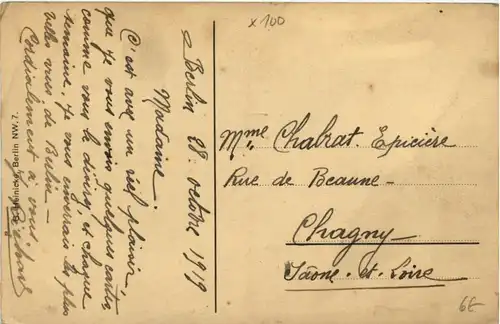 x100
Berlin 28 octobre 1919
Madame
C'est avec un réel plaisir
que je vous envois quelques cartes
comme vous le désirez, et chaque
semaine, je vous enverrais les plus
belles vues de Berlin —
Cordialement à vous.
Berlin NW. 7.
Mme Chabrat. Epicière
Rue de Beaune —
Chagny
Saône-et-Loire
6E